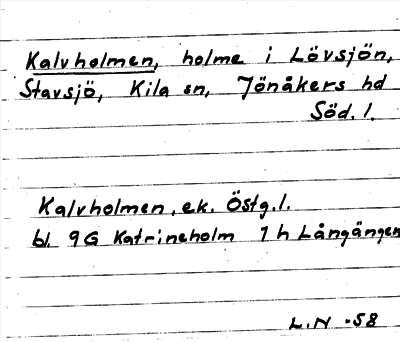 Kalvholmen, holme i Lövsjön,
Stavsjö, Kila sn, Jönåkers hd
Söd. l.
Kalvholmen, ek. Östg. l.
bl. 9G Katrineholm 1 h Långängen
L.N -58